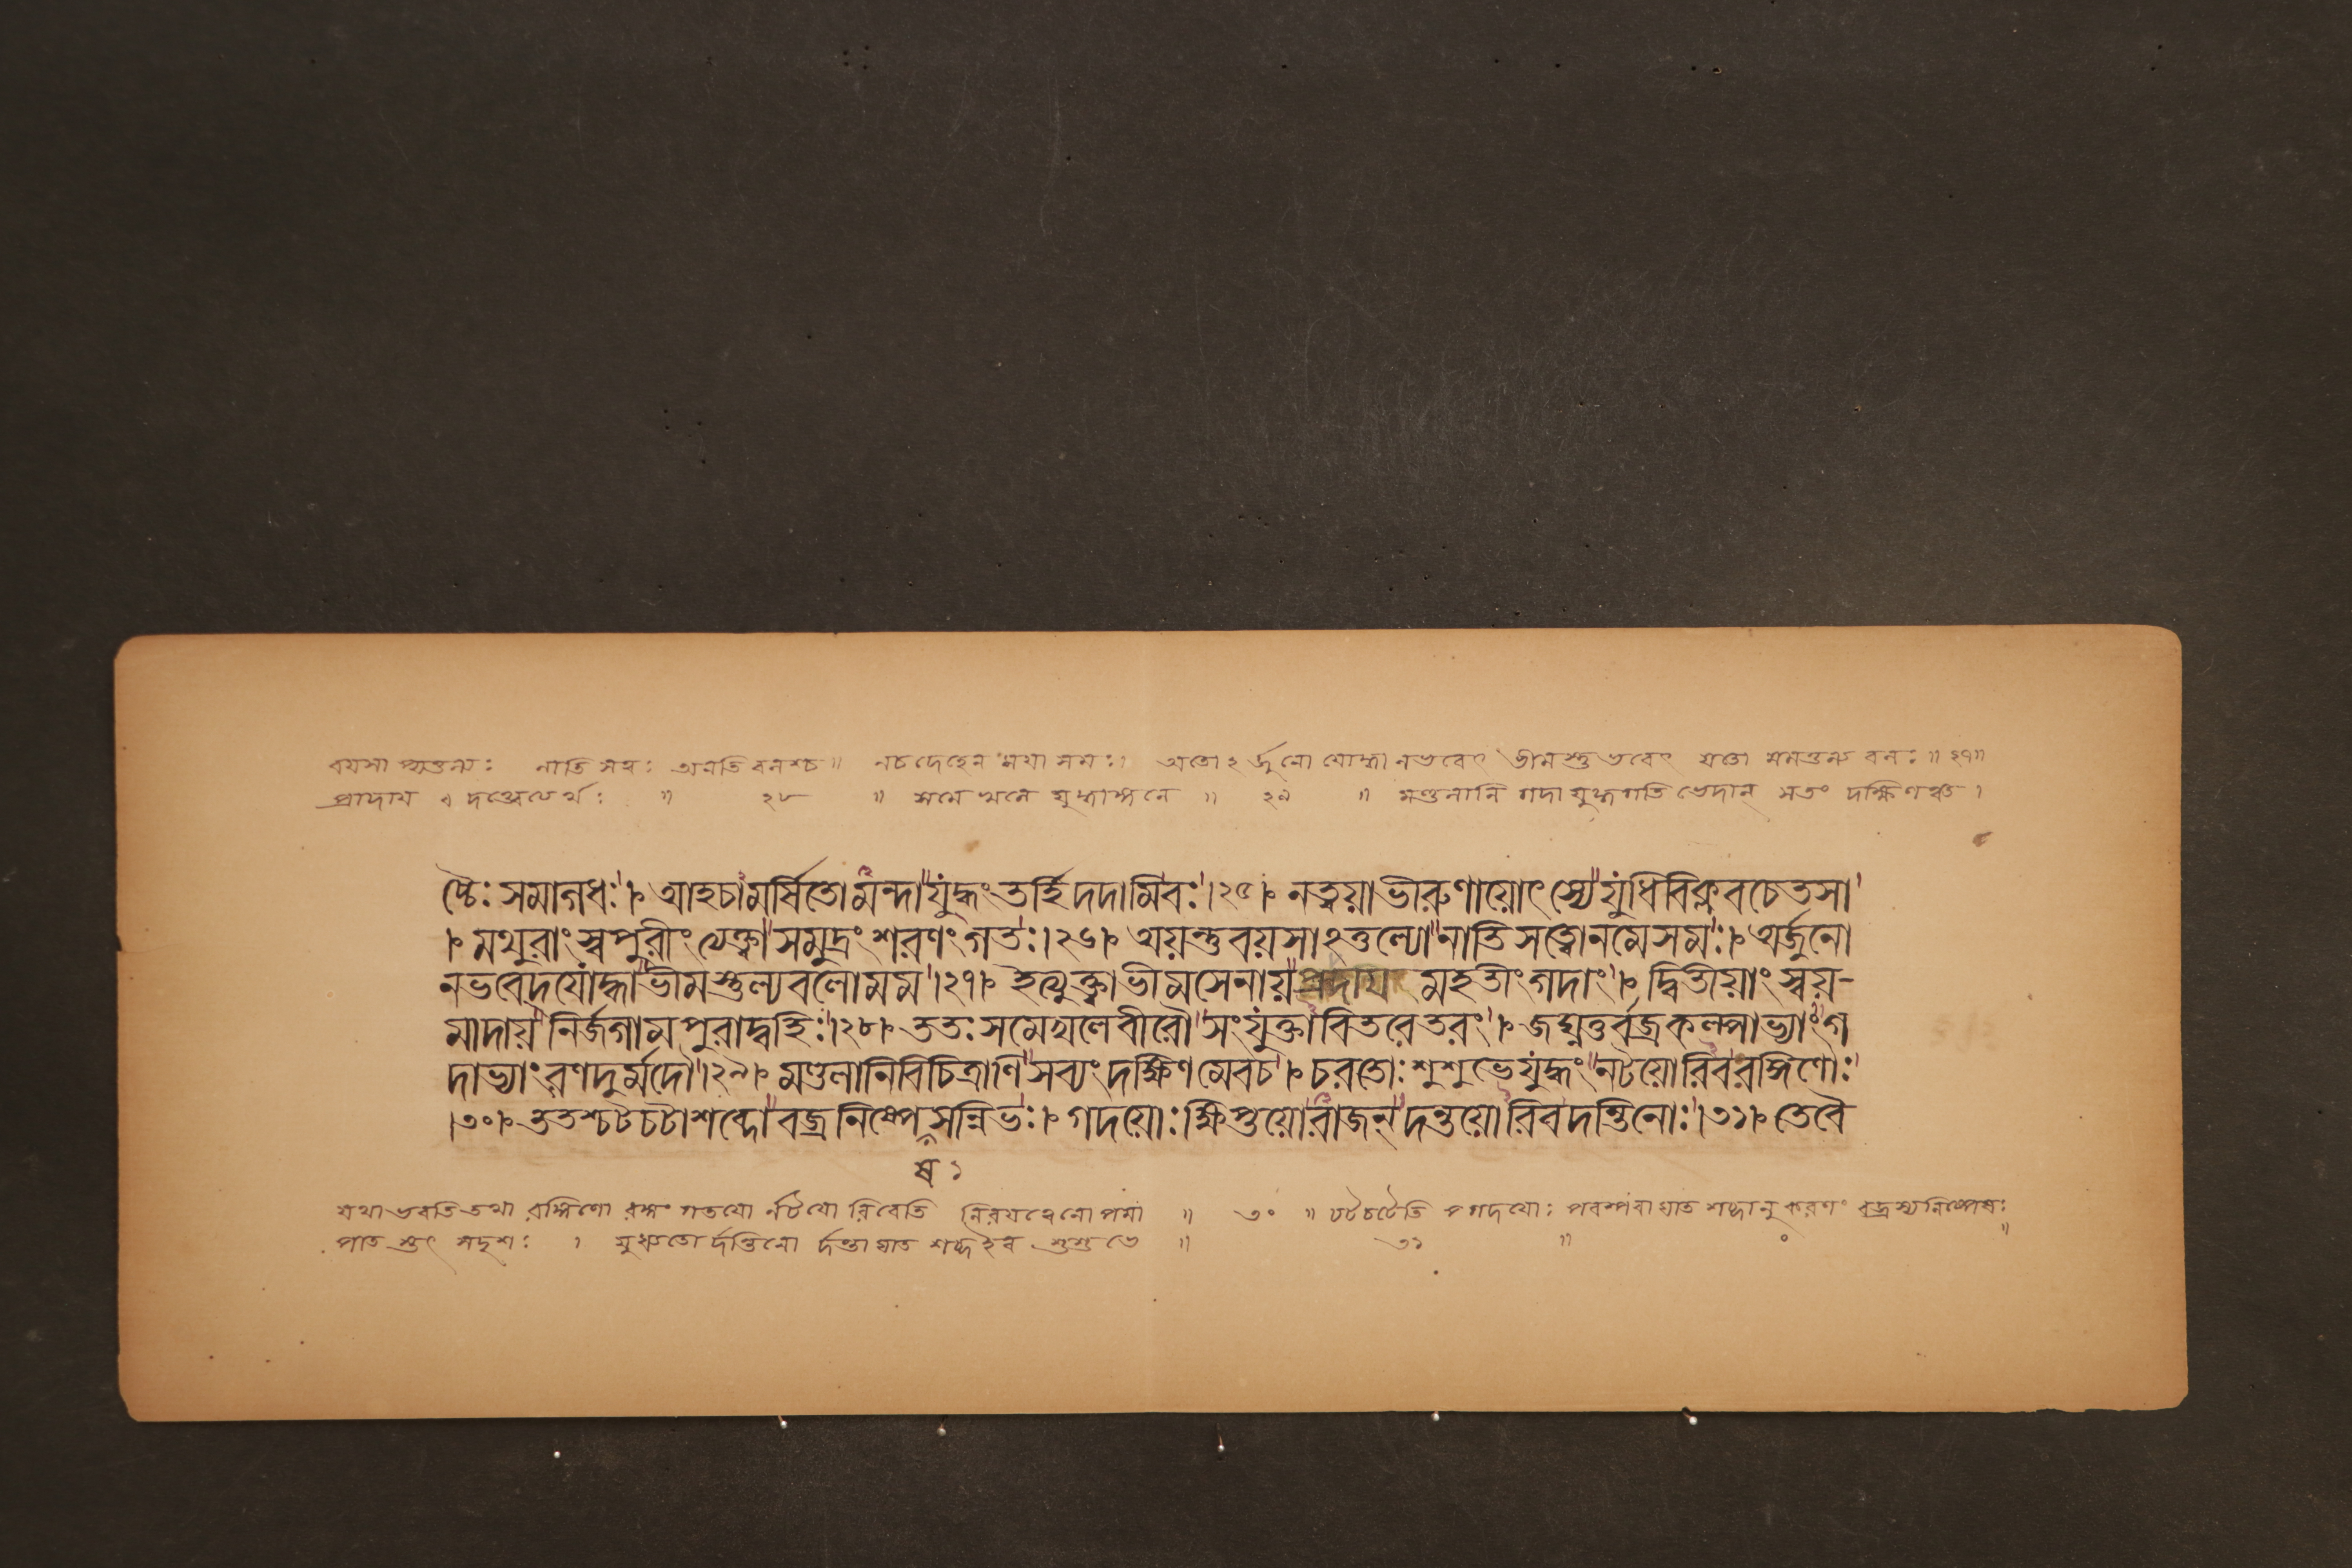 বয়সা প্যতুল্যঃ নাতি সত্ত্বঃ অনতি বলশ্চ॥ নচ দেহেন ময়া সমঃ। অতোঽর্জুনো যোদ্ধা নভবেৎ ভীমস্তু ভবেৎ যতো মমতুল্য বলঃ॥২৭॥
প্রাদায় দত্ত্বেত্যর্থঃ ॥ ২৮ ॥ সমে খলে যুদ্ধাঙ্গনে ॥ ২৯ ॥ মণ্ডলানি গদা যুদ্ধগতি ভেদান্ সব্যং দক্ষিণঞ্চ।
ষ্চৈঃ সমাগধঃ।আহচামর্ষিতোমন্দাযুদ্ধংতর্হিদদামিবঃ।২৫। নত্বয়াভীরুণাযোৎস্যেযুধিবিক্লবচেতসা
। মথুরাংস্বপুরীংত্যেক্ত্বাসমুদ্রংশরণংগতঃ।২৬। অয়ন্তুবয়সাঽতুল্যোনাতিসত্ত্বোনমেসমঃ। অর্জুনো
নভবেদযোদ্ধাভীমস্তুল্যবলোমম।২৭। ইত্যুক্ত্বাভীমসেনায়প্রাদায় মহতীংগদাং। দ্বিতীয়াংস্বয়-
মাদায়নির্জগামপুরাদ্বহিঃ।২৮। ততঃসমেখলেবীরৌসংযুক্তাবিতরেতরং। জঘ্নতুর্বজ্রকল্পাভ্যাংগ
দাভ্যাংরণদুর্মদৌ।২৯। মণ্ডলানিবিচিত্রাণিসব্যংদক্ষিণমেবচ। চরতোঃশুশুভেযুদ্ধংনটয়োরিবরঙ্গিণোঃ
।৩০। ততশ্চটচটাশব্দোবজ্রনিষ্পেসন্নিভঃ। গদয়োঃক্ষিপ্তয়োরাজন্দন্তয়োরিবদন্তিনোঃ।৩১। তেবৈ
ষ ১
যথা ভবতি তথা রঙ্গিণো রঙ্গং গতয়ো র্নটয়ো রিবেতি নিরয়ত্বেনোপমা ॥ ৩০ ॥ চটচটেতি গদয়োঃ পরস্পরা ঘাত শব্দানু করণং বজ্রস্য নিষ্পেষঃ
পাত স্তৎ সদৃশঃ । যুধ্যতো র্দন্তিনো র্দন্তা ঘাত শব্দ ইব শুশুভে ॥ ৩১ ॥